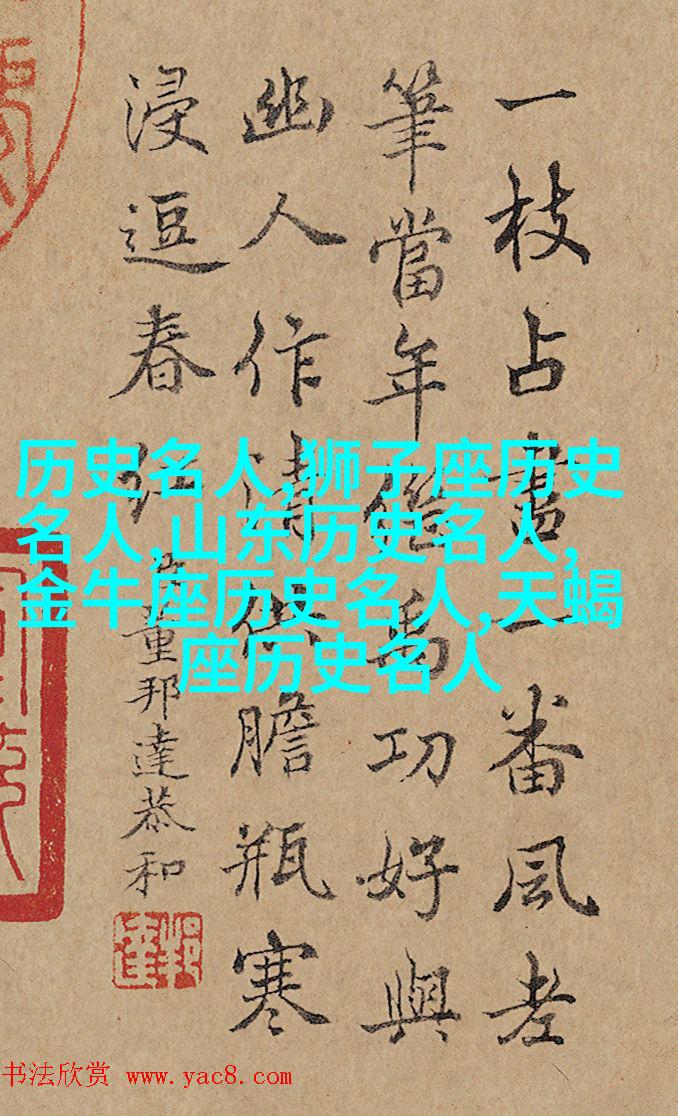 一枝占盡一番風老
筆當年繼禹功好與
幽人作清供膽瓶寒
浸逗春紅
臣董邦達恭和
邦達
历史名人,狮子座历史
名人,山东历史名人,
金牛座历史名人,天蝎
座历史名人
书法欣赏 www.yac8.com